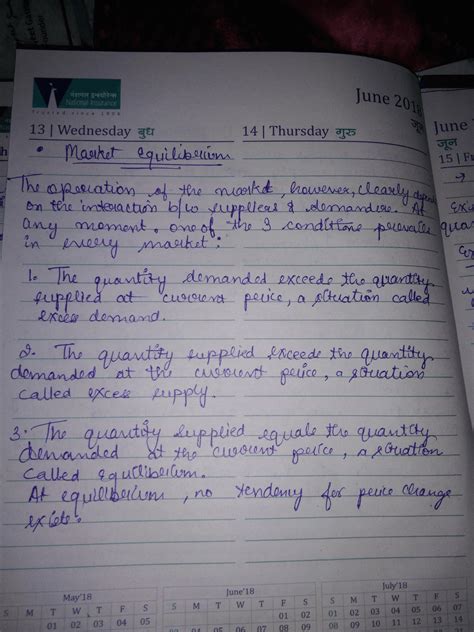 नेशनल इन्श्योरेन्स
National Insurance
Trusted since 1906
June 201
जून
13 | Wednesday बुध
14 | Thursday गुरु
June
जून
15 | Fr
• Market Equilibrium
The operation of the market, however, clearly depend
on the interaction b/w suppliers & demanders. At
any moment, one of the 3 conditions prevails
in every market:
1. The quantity demanded exceeds the quantity
supplied at current price, a situation called
excess demand.
2. The quantity supplied exceeds the quantity
demanded at the current price, a situation
called excess supply.
3. The quantity supplied equals the quantity
demanded at the current price, a situation
called Equilibrium.
At equilibrium, no tendency for price change
exists.
May'18
S M T W T F S
01 02 03 04 05
June'18
S M T W T F S
01 02
03 04 05 06 07 08 09
July'18
S M T W T F S
01 02 03 04 05 06 07